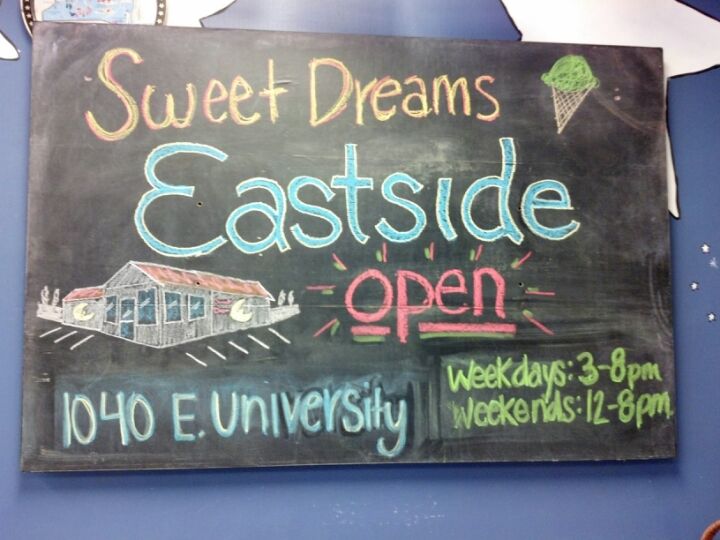 Sweet Dreams
Eastside
open
1040 E. University
Weekdays: 3-8pm
Weekends: 12-8pm